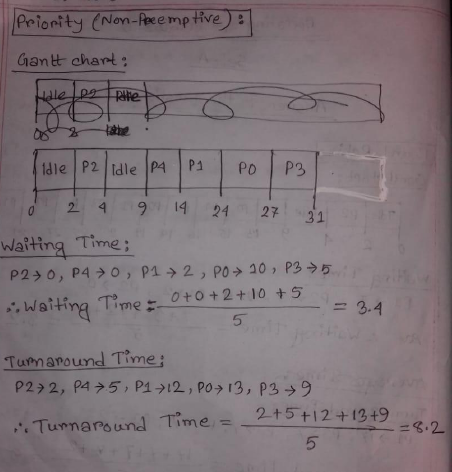 Priority (Non-Preemptive):
Gantt chart:
Idle P2 Idle
Idle P2 Idle P4 P1 P0 P3
0 2 4 9 14 24 27 31
Waiting Time:
P2→0, P4→0, P1→2, P0→10, P3→5
∴ Waiting Time = 0+0+2+10+5 / 5 = 3.4
Turnaround Time:
P2→2, P4→5, P1→12, P0→13, P3→9
∴ Turnaround Time = 2+5+12+13+9 / 5 = 8.2